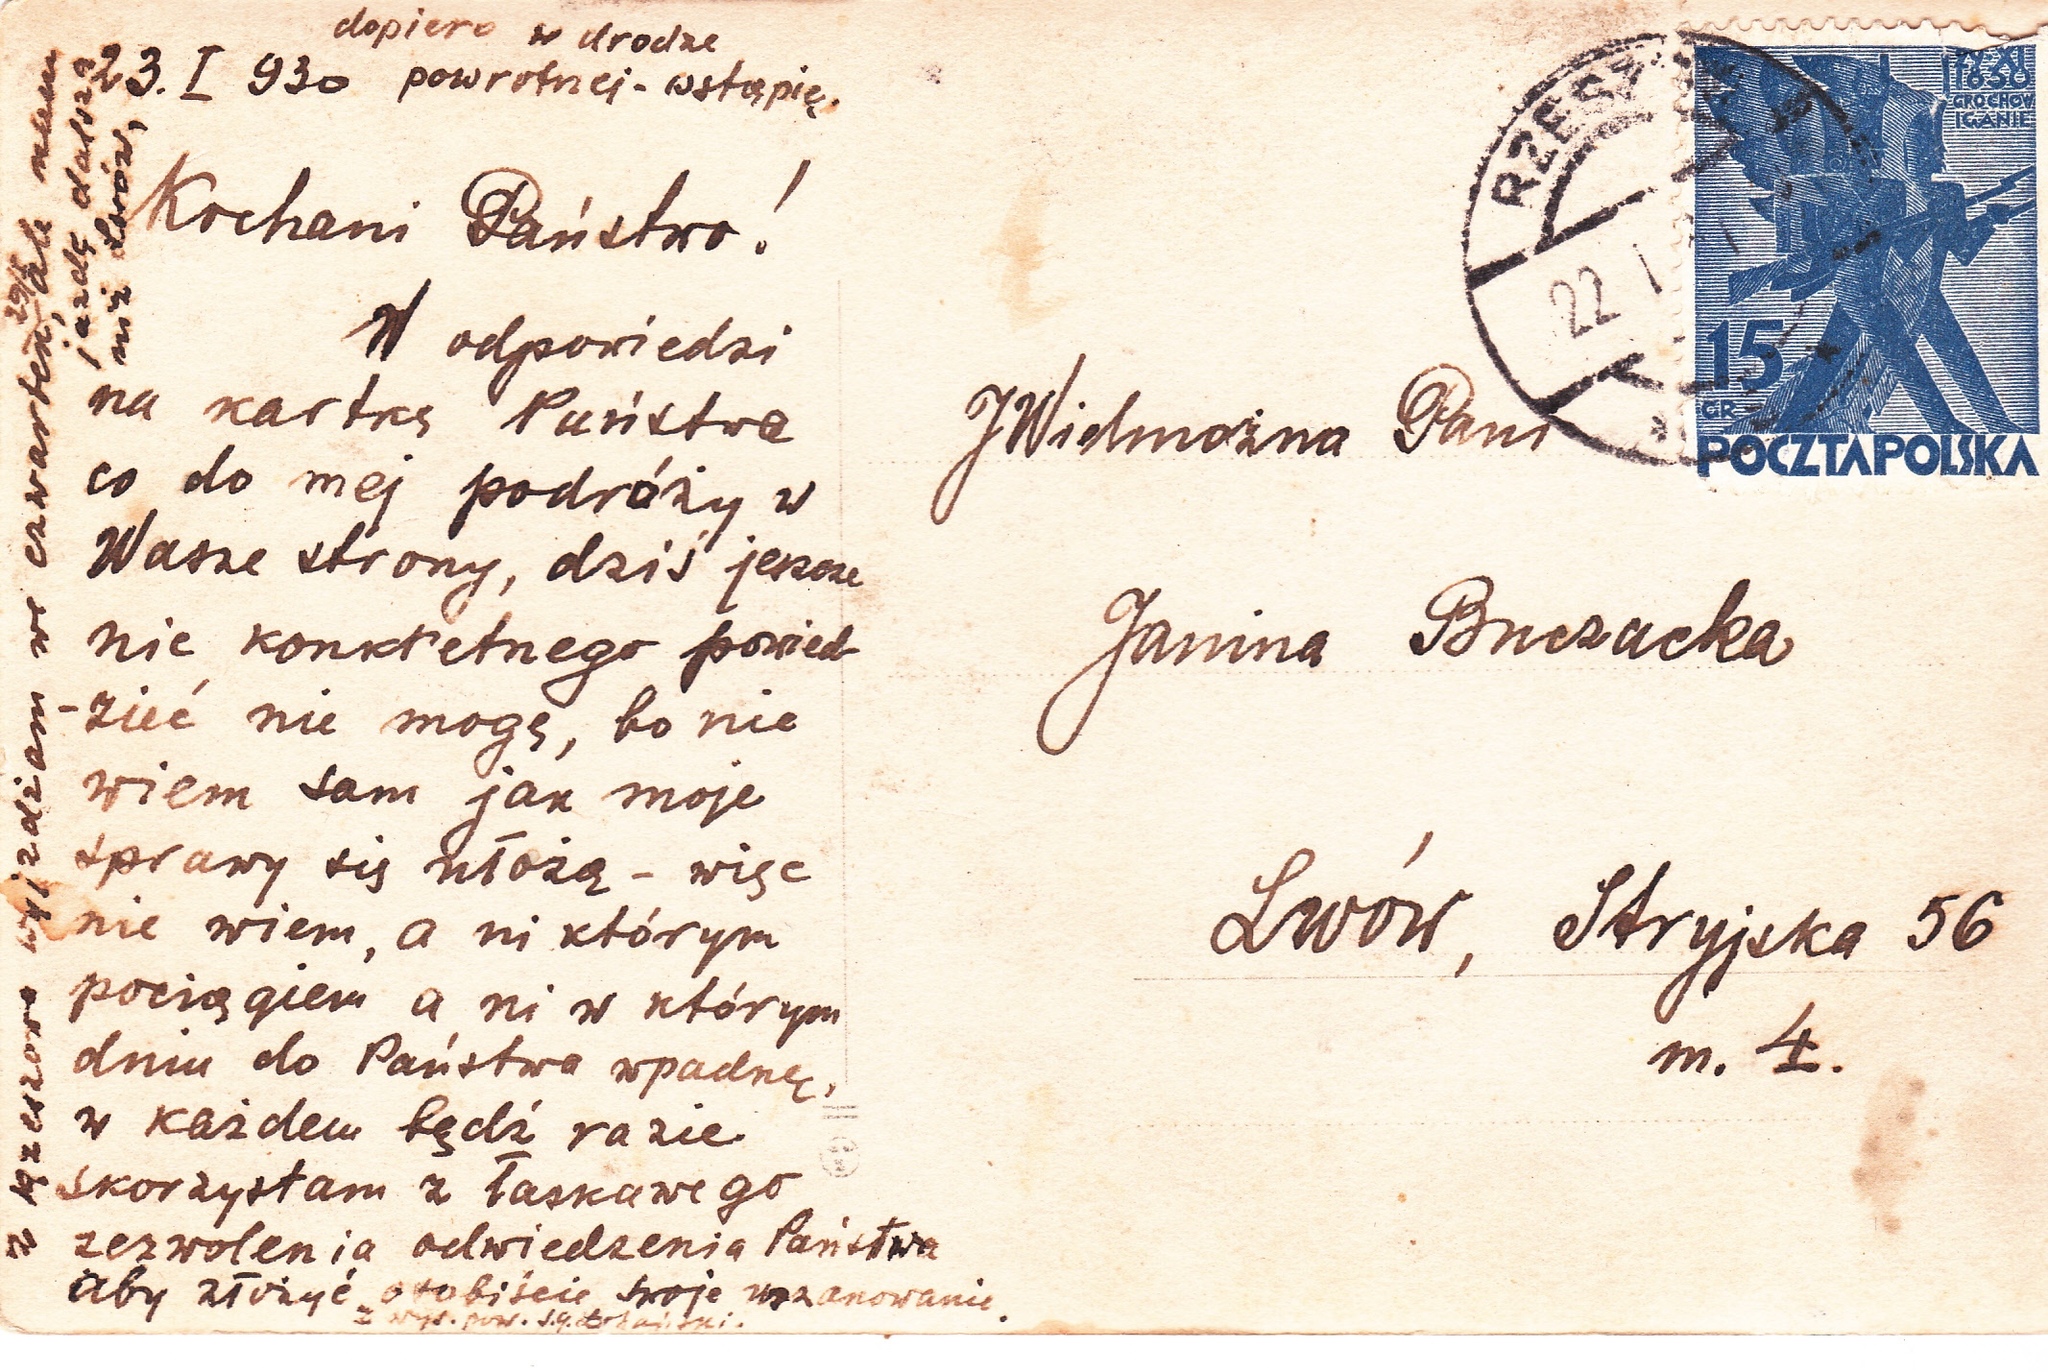 dopiero w drodze
23. I 930 powrotnej - wstąpię.
Kochani Państwo!
W odpowiedzi
na kartkę Państwa
co do mej podróży w
Wasze strony, dziś jeszcze
nic konkretnego powied-
-zieć nie mogę, bo nie
wiem sam jak moje
sprawy się ułożą - więc
nie wiem, a ni którym
pociągiem a ni w którym
dniu do Państwa wpadnę,
w każdem bądź razie
skorzystam z łaskawego
zezwolenia odwiedzenia Państwa
aby złożyć osobiście swoje uszanowanie.
z wys. pow.
z Rzeszowa wyjeżdżam w czwartek, 29/I ale mam
jazdę dalszą
niż Lwów,
JWielmożna Pani
Janina Buczacka
Lwów, Stryjska 56
m. 4.
RZESZ
22 I
29 XI
1830
GROCHÓW
IGANIE
15
GR
POCZTA POLSKA